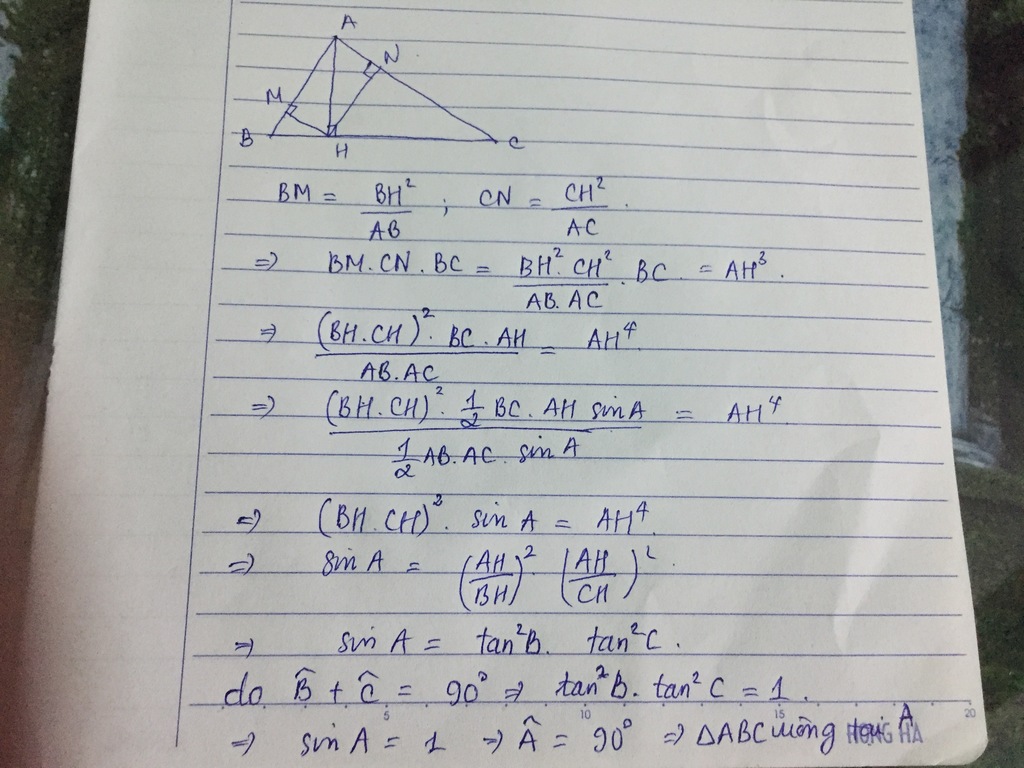 A
N
M
B
H
C
BM = BH²/AB ; CN = CH²/AC.
⇒ BM.CN.BC = BH².CH²/AB.AC . BC = AH³.
⇒ (BH.CH)². BC.AH / AB.AC = AH⁴
⇒ (BH.CH)². 1/2 BC.AH sinA / 1/2 AB.AC.sinA = AH⁴
⇒ (BH.CH)². sin A = AH⁴
⇒ sin A = (AH/BH)² (AH/CH)².
⇒ sin A = tan²B. tan²C.
do B̂ + Ĉ = 90° ⇒ tan²B. tan²C = 1.
5 10 15 20
⇒ sin A = 1 ⇒ Â = 90° ⇒ ΔABC vuông tại A
HONG HA